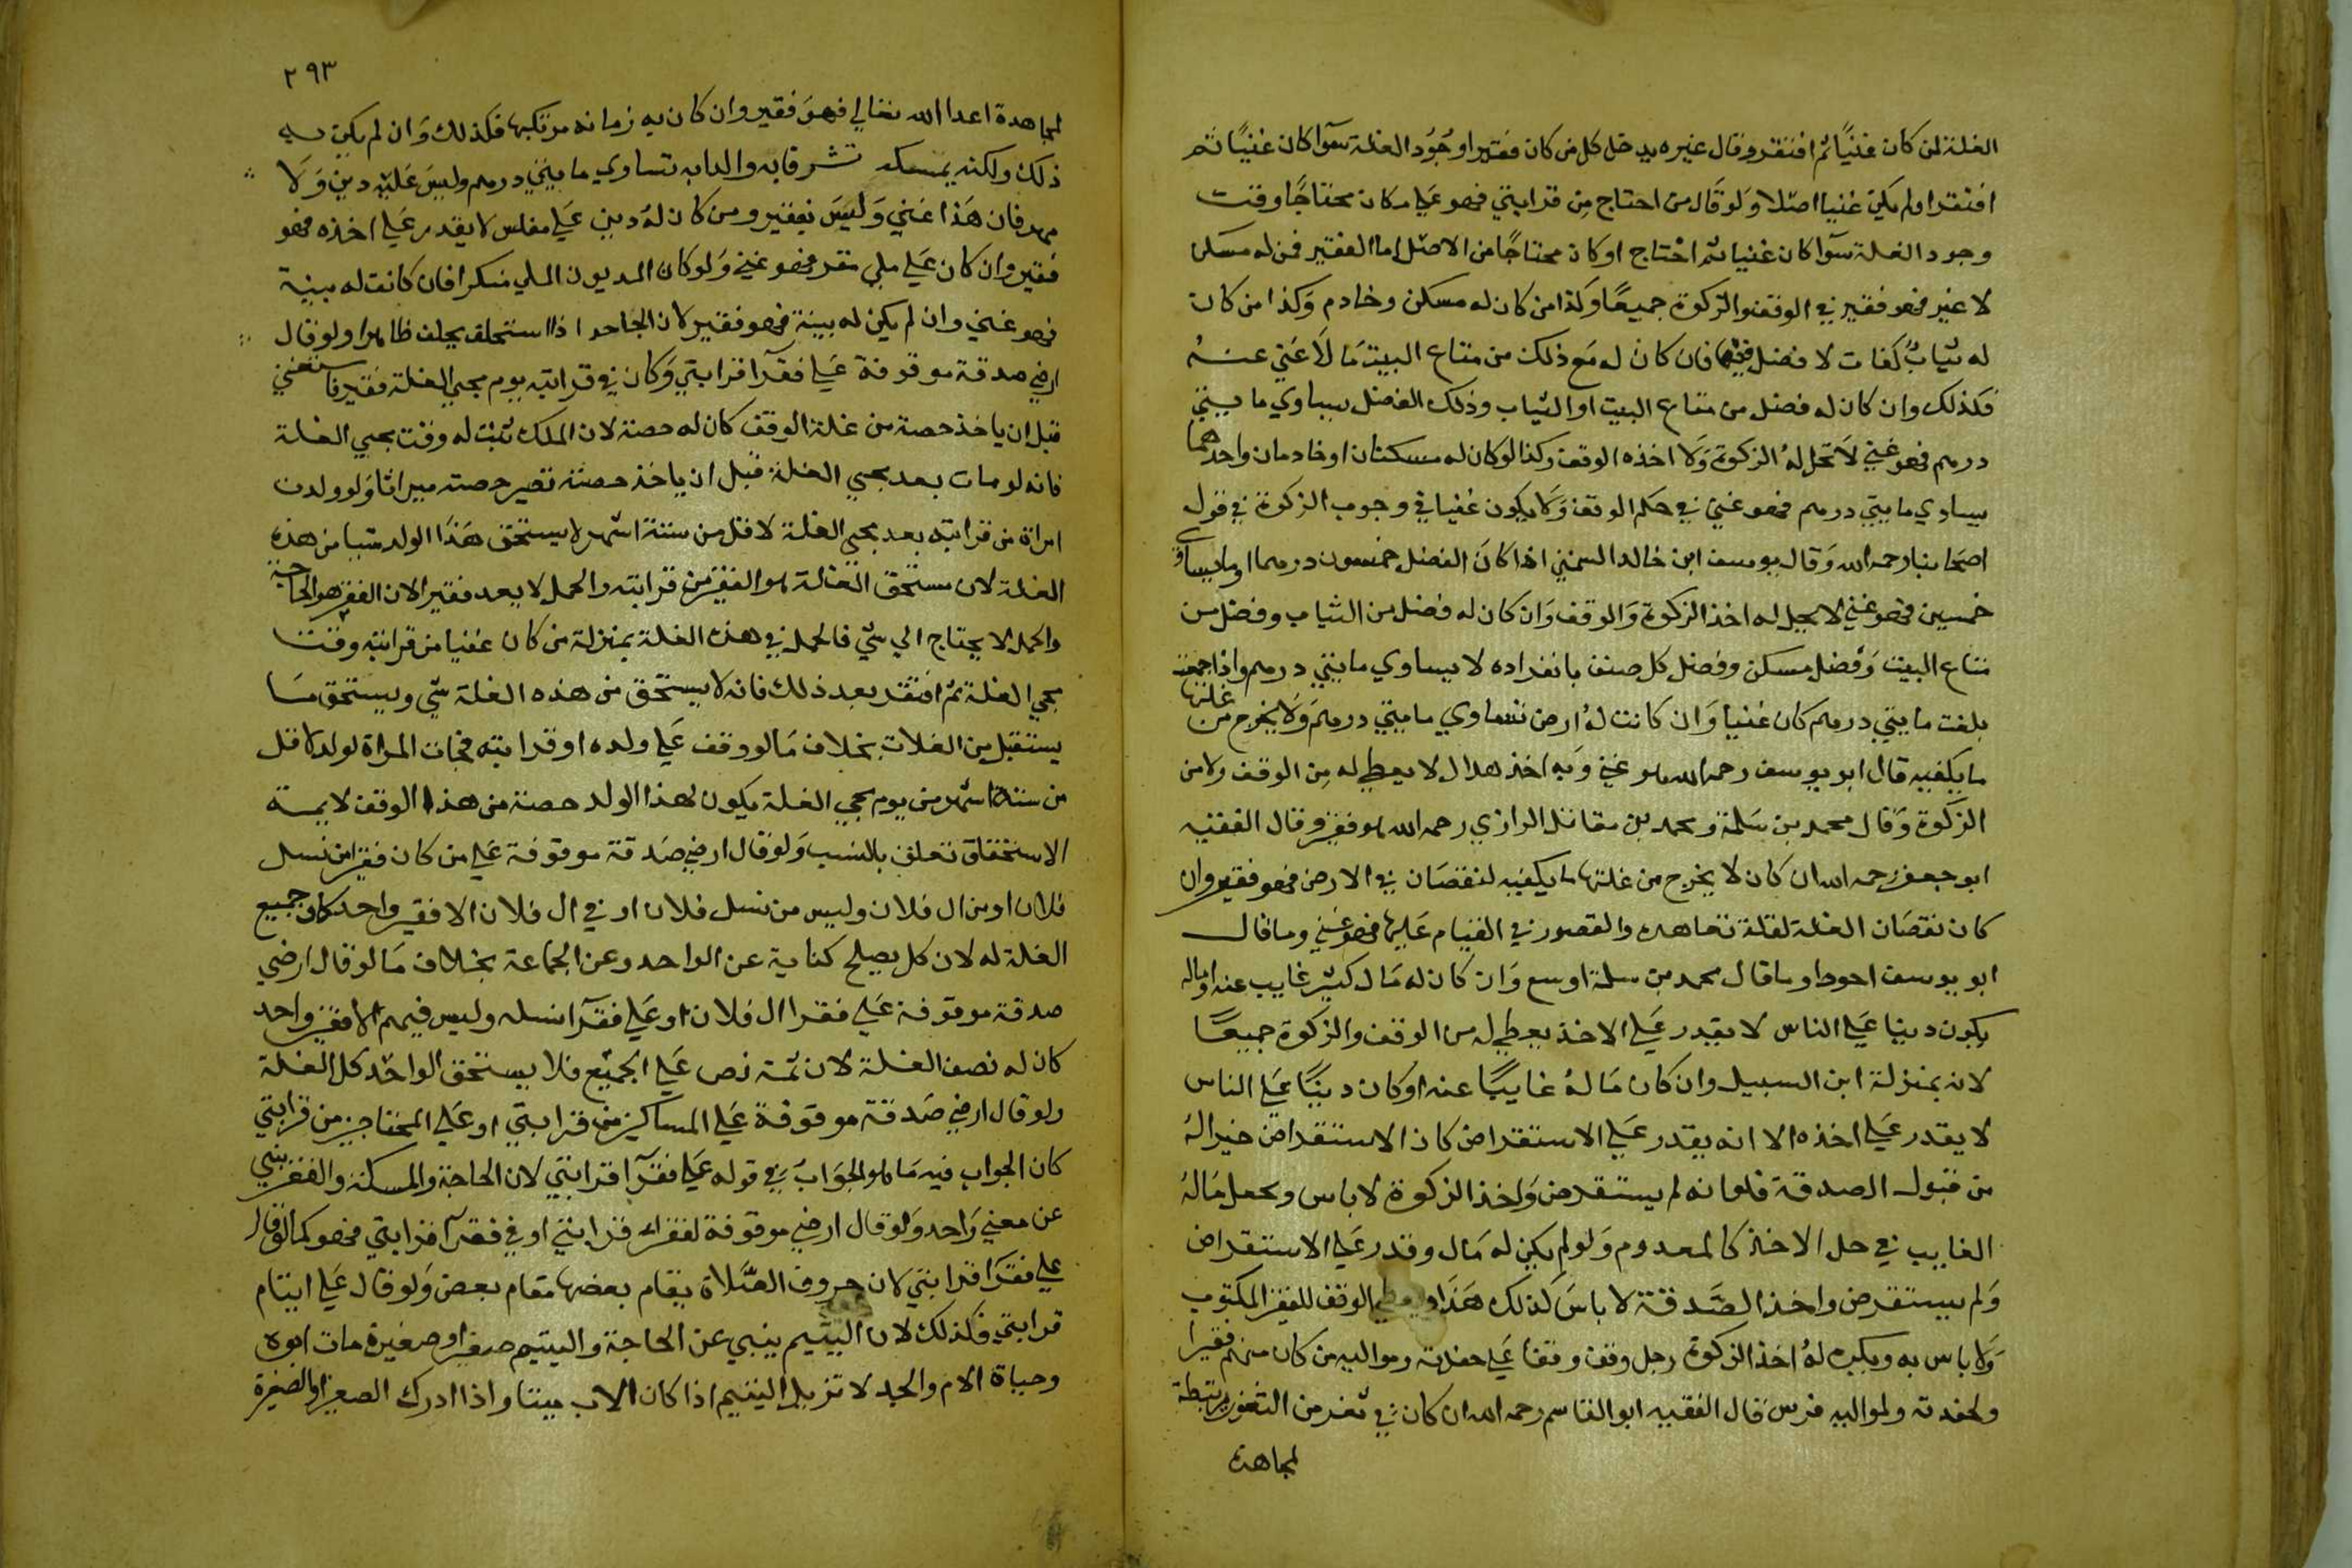 الغلة لمن كان غنيًا ثم افتقر وقال غيره يدخل كل من كان فقيرا وجُوُد الغلة سوآ كان غنيًا ثم
افتقر او لم يكن غنيا اصلا وَلو قَال من احتاج مِن قرابتي فهو عَلي من كان محتاجًا وقت
وجود الغلة سوآ كان غنيا ثم احْتاج او كان محتاجًا من الاصل اما الفقير فمن له مسكن
لا غير فهو فقير في الوقف والزكوة جميعًا وَكذا من كان له مسكن وخادم وَكذا من كان
له ثيابُ كفات لا فضل فيها فان كان له مَع ذلك من متاع البيت مَا لَا غَني عنه
فكذلك وان كان له فضل من متاع البيت او الثياب وذلك الفضل يساوي مايتي
درهم فهو غني لَا تحل لهُ الزكوة وَلا اخذه الوقف وكذا لو كان له مسكنان او خادمان واحدهما
يساوي مايتي درهم فهو غني في حكم الوقف وَلا يكون غنيا في وجوب الزكوة في قول
اصحابنا رحمه الله وَقال يوسف ابن خالد السمتي اذا كانَ الفضل خمسون درهما او ما يساوي
خمسين فهو غني لا يحل له اخذ الزكوة وَالوقف وَان كان له فضل من الثياب وفضل من
متاع البيت وَفضل مسكن وفضل كل صنف بانفراده لا يساوي مايتي درهم واذا جمعت
بلغت مايتي درهم كان غنيا وَان كانت لهُ ارض تساوي مايتي درهم وَلا يخرج من غلتها
ما يكفيه قال ابو يوسف رحمه الله هو غني وَبه اخذ هلال لا يعطي له مِن الوقف ولا من
الزكوة وَقال محمد بن سَلمة ومحمد بن مقاتل الرازي رحمه الله هو فقير وقال الفقيه
ابو جعفر رحمه الله ان كان لا يخرج من غلتها ما يكفيه لنقصَان في الارض فهو فقير وان
كان نقصَان الغلة لقلة تعاهده والقصور في القيام عَليها فهو غني وما قال
ابو يوسف احوط وما قال محمد بن سلمة اوسع وَان كان له مَال كثير غايب عنه او ماله
يكون دينا عَلي الناس لا يقدر عَلي الاخذ يعطي له من الوقف والزكوة جميعًا
لانه بمنزلة ابن السبيل وان كان مَالهُ غايبًا عنه او كان دينًا عَلي الناس
لا يقدر عَلي اخذه الا انه يقدر عَلي الاستقراض كان الاستقراض خيرا لهُ
من قبول الصدقة فلو انه لم يستقرض وَاخذ الزكوة لا باس ويجعل مَالهُ
الغايب في حل الاخذ كالمعدوم وَلو لم يكن له مَال وقدر عَلي الاستقراض
وَلم يستقرض واخذ الصَّدقة لا باسَ كذلك هَذَا ويعطي الوقف للفقير المكتوب
وَلا باس به ويكره لهُ اخذ الزكوة رجل وقف وقفا عَلي حفدته ومواليه من كان منهم فقيرا
ولحفدته ولمواليه فرس قال الفقيه ابو القاسم رحمه الله ان كان في ثغر من الثغور يرتبطه
لمجاهدة
٢٩٣
لمجاهدة اعدا الله تعالي فهوَ فقير وان كان به زمانه مرتكبها فكذلك وَان لم يكن به
ذلك ولكنه يمسكه والدابه تساوي مايتي درهم وليسَ عَليه دين وَلا
مهر فان هَذا غني وَليسَ بفقير ومن كان لهُ دين عَلي مفلس لا يقدر عَلي اخذه فهو
فقير وان كان عَلي ملي مقر فهو غني وَلو كان المديون الملي منكرا فان كانت له بينة
فهو غني وان لم يكن له بينة فهو فقير لان الجاحد اذا استحلف يحلف ظاهرا ولو قال
ارضي صدقة موقوفة عَلي فقرآ قرابتي وَكان في قرابته يوم مجي الغلة فقير فاستغني
قبل ان ياخذ حصة من غلة الوقف كان له حصة لان الملك ثبت له وقت مجي الغلة
فانه لو مات بعد مجي الغلة قبل ان ياخذ حصته تصير حصته ميراثا وَلو ولدت
امراة من قرابته بعد مجي الغلة لاقل من ستة اشهر لا يستحق هَذَا الولد شيا من هذه
الغلة لان مستحق الغلة هو الفقير من قرابته والحمل لا يعد فقيرا لان الفقر هو الحاجة
والحمل لا يحتاج الي شي فالحمل في هذه الغلة بمنزلة من كان غنيا من قرابته وقت
مجي الغلة ثم افتقر بعد ذلك فانه لا يستحق من هذه الغلة شي ويستحق مَا
يستقبل من الغلات بخلاف مَا لو وقف عَلي ولده او قرابته فجات المراة لولد لاقل
من ستة اشهر من يوم مجي الغلة يكون لهذا الولد حصة من هذا الوقف لا يمة
الاستحقاق تعلق بالنسب وَلو قال ارضي صَدقة موقوفة عَلي من كان فقيرا من نسل
فلان او من ال فلان وليس من نسل فلان او في ال فلان الا فقير واحد كان جميع
الغلة له لان كل يصلح كناية عن الواحد وعن الجماعة بخلاف مَا لو قال ارضي
صدقة موقوفة عَلي فقرا ال فلان او عَلي فقرآ نسله وليس فيهم الا فقير واحد
كان له نصف الغلة لان ثمة نص عَلي الجميع فلا يستحق الواحد كل الغلة
ولو قال ارضي صَدقة موقوفة عَلي المساكين من قرابتي او عَلي المحتاجين من قرابتي
كان الجواب فيه مَا هو الجوَابُ في قوله عَلي فقرآ قرابتي لان الحاجة والمسكنة والفقر ينبي
عن معني وَاحد وَلو قال ارضي موقوفة لفقرا قرابتي او في فقرآ قرابتي فهو كما لو قال
علي فقرَا قرابتي لان حروف الصَّلاة يقام بعضها مقام بعض وَلو قال عَلي ايتام
قرابتي فكذلك لان اليتيم ينبي عن الحاجة واليتيم صغيرا وصغيرة مات ابوه
وحياة الام والجد لا تزيل اليتيم اذا كان الاب ميتا واذا ادرك الصغير او الصغيرة